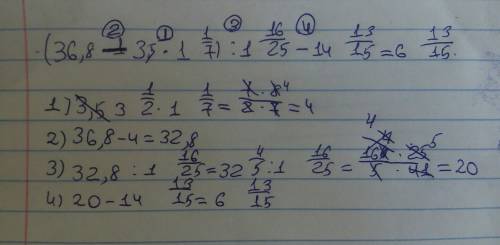 ② ① ③ ④
(36,8 - 3,5 · 1 1/7) : 1 16/25 - 14 13/15 = 6 13/15.
1) 3,5 3 1/2 · 1 1/7 = 7 · 8 4/2 · 7 = 4
2) 36,8 - 4 = 32,8
3) 32,8 : 1 16/25 = 32 4/5 : 1 16/25 = 4 164 · 25 5/5 · 41 = 20
4) 20 - 14 13/15 = 6 13/15